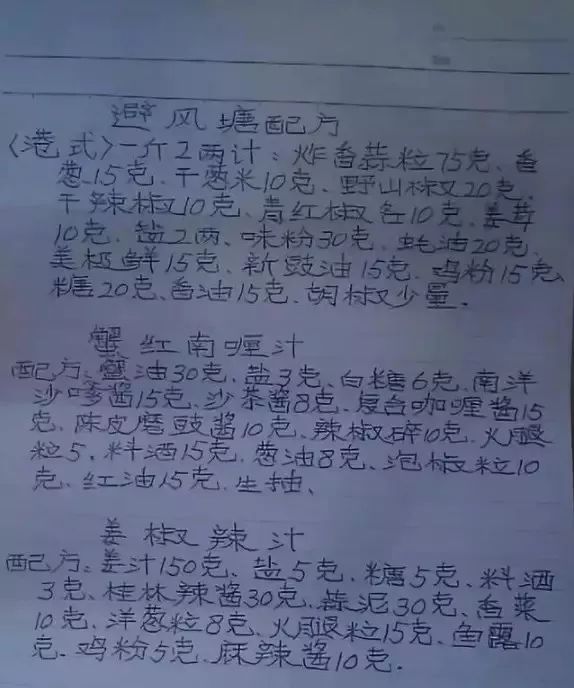 避风塘配方
〈港式〉一斤2两计：炸香蒜粒75克、香
葱15克、干葱米10克、野山椒20克、
干辣椒10克、青红椒各10克、姜茸
10克、盐2两、味粉30克、蚝油20克、
美极鲜15克、新豉油15克、鸡粉15克、
糖20克、香油15克、胡椒少量.
蟹红南喱汁
配方：蟹油30克、盐3克、白糖6克、南洋
沙嗲酱15克、沙茶酱8克、复合咖喱酱15
克、陈皮磨豉酱10克、辣椒碎10克、火腿
粒5、料酒15克、葱油8克、泡椒粒10
克、红油15克、生抽、
姜椒辣汁
配方：姜汁150克、盐5克、糖5克、料酒
3克、桂林辣酱30克、蒜泥30克、香菜
10克、洋葱粒8克、火腿粒15克、鱼露10
克、鸡粉5克、麻辣酱10克.